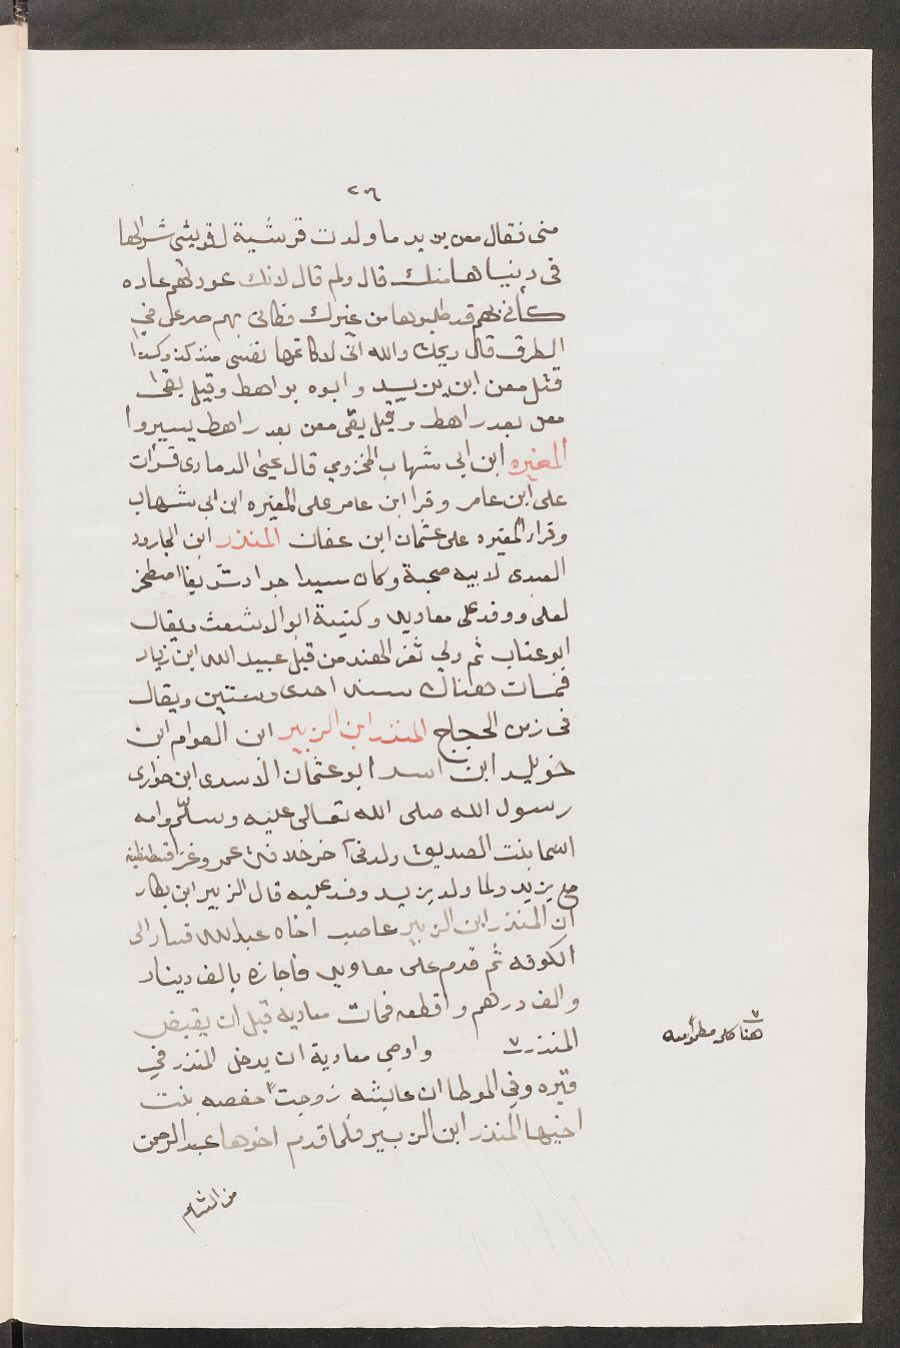 ٢٠٦
منى فقال معن بن يزيد ما ولدت قرشية لقريشى شرالها
فى دنياها منك قال ولم قال لانك عودتهم عاده
كأنى بهم قد طلبوها من غيرك فكانى بهم صرعى فى
الطرق قال ويحك والله انى لاكاتمها نفسى منذ كذ وكذا
قتل معن ابن يزيد وابوه براهط وقيل بقى
معن بعد راهط وقيل بقى معن بعد راهط يسيروا
المغيره ابن ابى شهاب المخزومي قال يحيى الدمارى قرات
على ابن عامر وقرا ابن عامر على المغيره ابن ابى شهاب
وقراء المغيره على عثمان ابن عفان المنذر ابن الجارود
العبدى لابيه صحبة وكان سيدا جوادا شريفا اصطخر
لعلى ووفد على معاويه وكنيتة ابوالاشعث ويقال
ابوعتاب ثم ولي ثغر الهند من قبل عبيد الله ابن زياد
فمات هناك سنه احدى وستين ويقال
فى زمن الحجاج المنذر ابن الزبير ابن العوام ابن
خويلد ابن اسد ابوعثمان الاسدى ابن حوارى
رسول الله صلى الله تعالى عليه وسلم وامه
اسما بنت الصديق ولد فى آخر خلافة عمر وغزا قسطنطينة
مع يزيد ولما ولد يزيد وفد عليه قال الزبير ابن بكار
ان المنذر ابن الزبير غاصب اخاه عبدالله فسار الى
الكوفه ثم قدم على معاويه فاجازه بالف دينار
والف درهم واقطعه فمات معاويه قبل ان يقبض
المنذر ٧ واوصي معاوية ان يدخل المنذر في
قبره وفي الموطا ان عايشه زوجت حفصه بنت
اخيها المنذر ابن الزبير فلما قدم اخوها عبدالرحمن
من الشام
٧
هنا